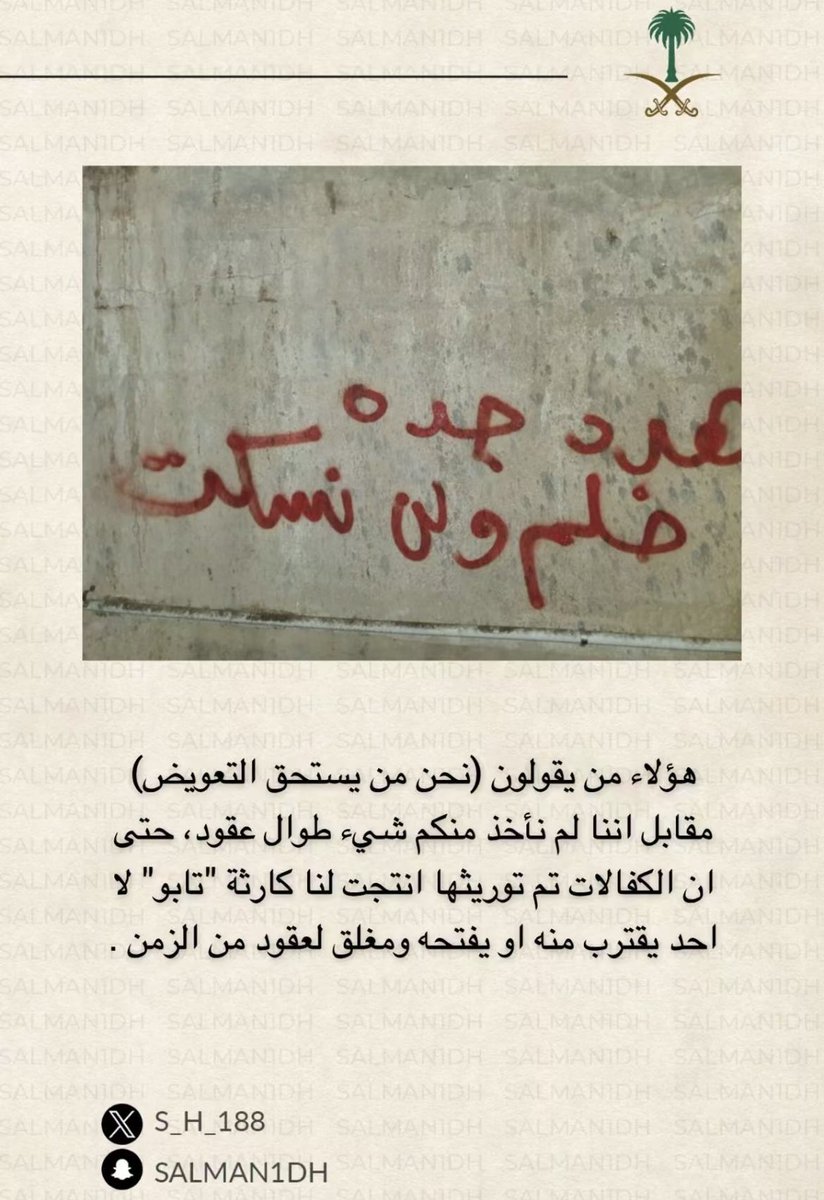 جده
ضلم ولن نسكت
هؤلاء من يقولون (نحن من يستحق التعويض)
مقابل اننا لم نأخذ منكم شيء طوال عقود، حتى
ان الكفالات تم توريثها انتجت لنا كارثة "تابو" لا
احد يقترب منه او يفتحه ومغلق لعقود من الزمن .
S_H_188
SALMAN1DH